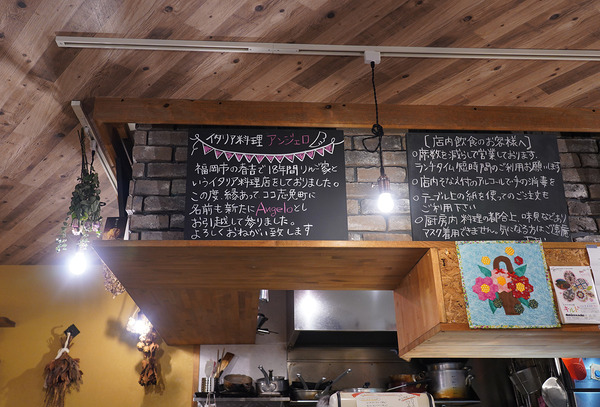 イタリア料理 アンジェロ
福岡市の春吉で18年間リル・客と
いうイタリア料理店をしておりました。
この度、縁あって ココ志免町に
名前も新たにAngeloとし
お引越して参りました。
よろしくおねがい致します
[店内飲食のお客様へ]
○席数を減らして営業しております。
ランチタイム短時間のご利用お願いします
○店内そなえ付のアルコールで手の消毒を
○テーブル上の紙を使ってのご注文を
ご利用下さい
○厨房内 料理の都合上、味見などあり
マスク着用できません。気になる方はご遠慮